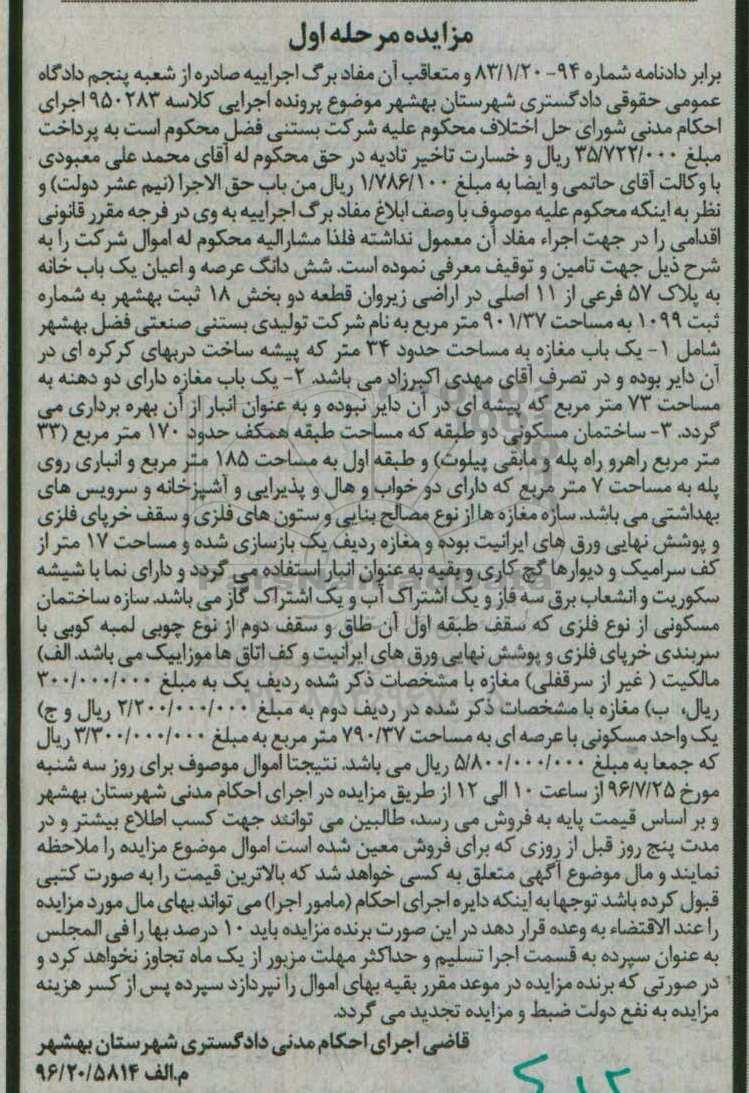 مزایده مرحله اول
برابر دادنامه شماره ۹۴-۸۳/۱/۲۰ و متعاقب آن مفاد برگ اجراییه صادره از شعبه پنجم دادگاه
عمومی حقوقی دادگستری شهرستان بهشهر موضوع پرونده اجرایی کلاسه ۹۵۰۲۸۳ اجرای
احکام مدنی شورای حل اختلاف محکوم علیه شرکت بستنی فضل محکوم است به پرداخت
مبلغ ۳۵/۷۲۲/۰۰۰ ریال و خسارت تاخیر تادیه در حق محکوم له آقای محمد علی معبودی
با وکالت آقای حاتمی و ایضا به مبلغ ۱/۷۸۶/۱۰۰ ریال من باب حق الاجرا (نیم عشر دولت) و
نظر به اینکه محکوم علیه موصوف با وصف ابلاغ مفاد برگ اجراییه به وی در فرجه مقرر قانونی
اقدامی را در جهت اجراء مفاد آن معمول نداشته فلذا مشارالیه محکوم له اموال شرکت را به
شرح ذیل جهت تامین و توقیف معرفی نموده است. شش دانگ عرصه و اعیان یک باب خانه
به پلاک ۵۷ فرعی از ۱۱ اصلی در اراضی زیروان قطعه دو بخش ۱۸ ثبت بهشهر به شماره
ثبت ۱۰۹۹ به مساحت ۹۰۱/۳۷ متر مربع به نام شرکت تولیدی بستنی صنعتی فضل بهشهر
شامل ۱- یک باب مغازه به مساحت حدود ۳۴ متر که پیشه ساخت دربهای کرکره ای در
آن دایر بوده و در تصرف آقای مهدی اکبرزاد می باشد. ۲- یک باب مغازه دارای دو دهنه به
مساحت ۷۳ متر مربع که پیشه ای در آن دایر نبوده و به عنوان انبار از آن بهره برداری می
گردد. ۳- ساختمان مسکونی دو طبقه که مساحت طبقه همکف حدود ۱۷۰ متر مربع (۳۳
متر مربع راهرو راه پله و مابقی پیلوت) و طبقه اول به مساحت ۱۸۵ متر مربع و انباری روی
پله به مساحت ۷ متر مربع که دارای دو خواب و هال و پذیرایی و آشپزخانه و سرویس های
بهداشتی می باشد. سازه مغازه ها از نوع مصالح بنایی و ستون های فلزی و سقف خرپای فلزی
و پوشش نهایی ورق های ایرانیت بوده و مغازه ردیف یک بازسازی شده و مساحت ۱۷ متر از
کف سرامیک و دیوارها گچ کاری و بقیه به عنوان انبار استفاده می گردد و دارای نما با شیشه
سکوریت و انشعاب برق سه فاز و یک اشتراک آب و یک اشتراک گاز می باشد. سازه ساختمان
مسکونی از نوع فلزی که سقف طبقه اول آن طاق و سقف دوم از نوع چوبی لمبه کوبی با
سربندی خرپای فلزی و پوشش نهایی ورق های ایرانیت و کف اتاق ها موزاییک می باشد. الف)
مالکیت ( غیر از سرقفلی) مغازه با مشخصات ذکر شده ردیف یک به مبلغ ۳۰۰/۰۰۰/۰۰۰
ریال، ب) مغازه با مشخصات ذکر شده در ردیف دوم به مبلغ ۲/۲۰۰/۰۰۰/۰۰۰ ریال و ج)
یک واحد مسکونی با عرصه ای به مساحت ۷۹۰/۳۷ متر مربع به مبلغ ۳/۳۰۰/۰۰۰/۰۰۰ ریال
که جمعا به مبلغ ۵/۸۰۰/۰۰۰/۰۰۰ ریال می باشد. نتیجتا اموال موصوف برای روز سه شنبه
مورخ ۹۶/۷/۲۵ از ساعت ۱۰ الی ۱۲ از طریق مزایده در اجرای احکام مدنی شهرستان بهشهر
و بر اساس قیمت پایه به فروش می رسد، طالبین می توانند جهت کسب اطلاع بیشتر و در
مدت پنج روز قبل از روزی که برای فروش معین شده است اموال موضوع مزایده را ملاحظه
نمایند و مال موضوع آگهی متعلق به کسی خواهد شد که بالاترین قیمت را به صورت کتبی
قبول کرده باشد توجها به اینکه دایره اجرای احکام (مامور اجرا) می تواند بهای مال مورد مزایده
را عند الاقتضاء به وعده قرار دهد در این صورت برنده مزایده باید ۱۰ درصد بها را فی المجلس
به عنوان سپرده به قسمت اجرا تسلیم و حداکثر مهلت مزبور از یک ماه تجاوز نخواهد کرد و
در صورتی که برنده مزایده در موعد مقرر بقیه بهای اموال را نپردازد سپرده پس از کسر هزینه
مزایده به نفع دولت ضبط و مزایده تجدید می گردد.
قاضی اجرای احکام مدنی دادگستری شهرستان بهشهر
م.الف ۹۶/۲۰/۵۸۱۴